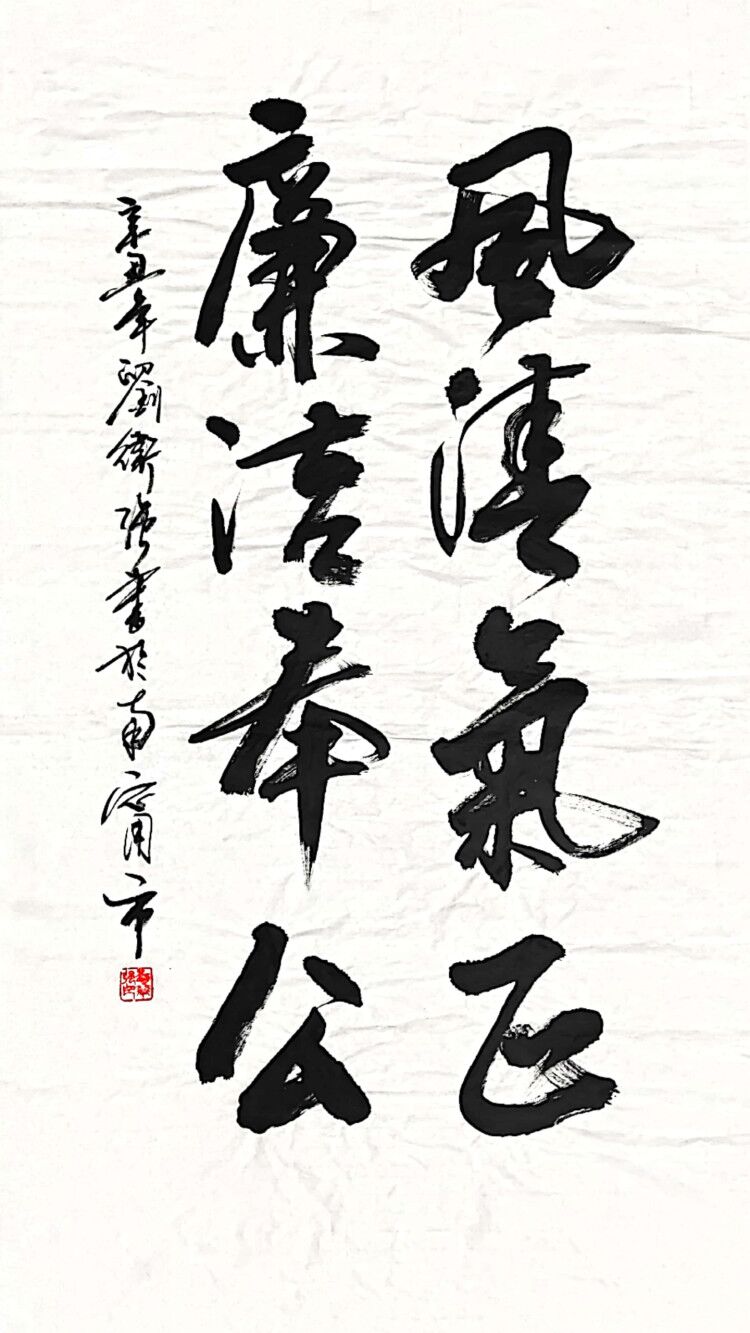 風清氣正
廉洁奉公
辛丑年劉衛張書於南寧市